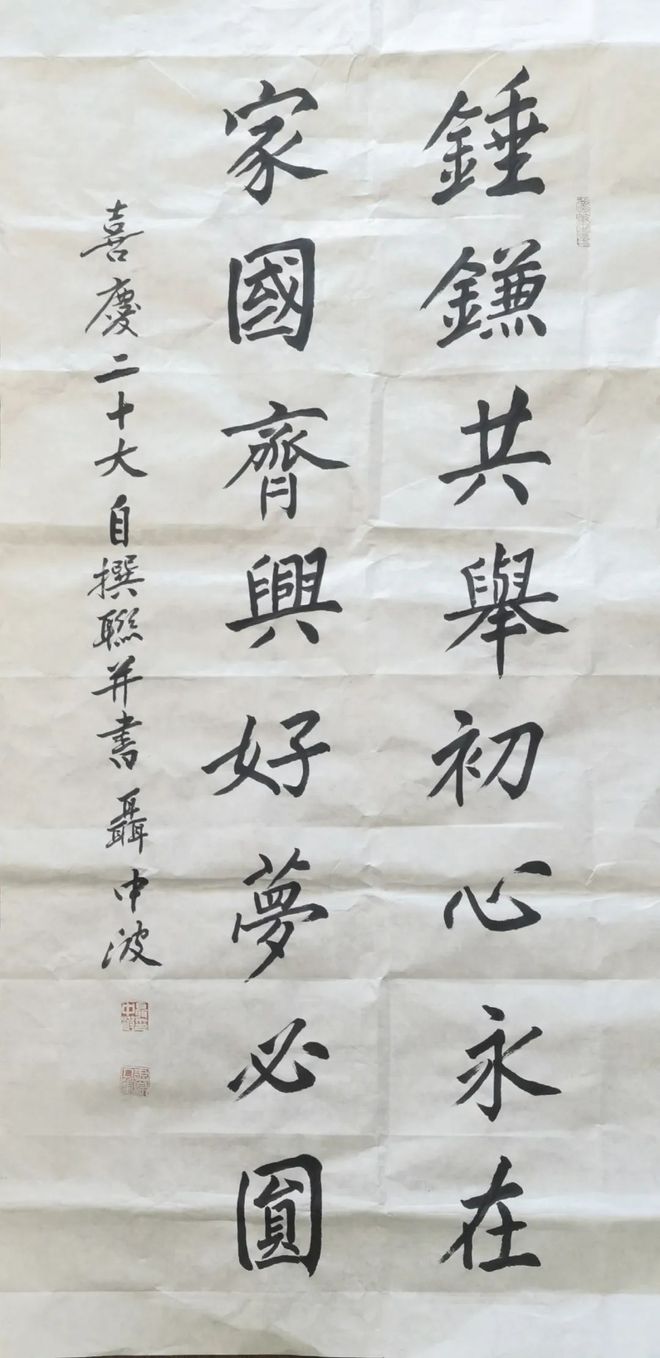 錘鐮共舉初心永在
家國齊興好夢必圓
喜慶二十大自撰聯并書聶中波